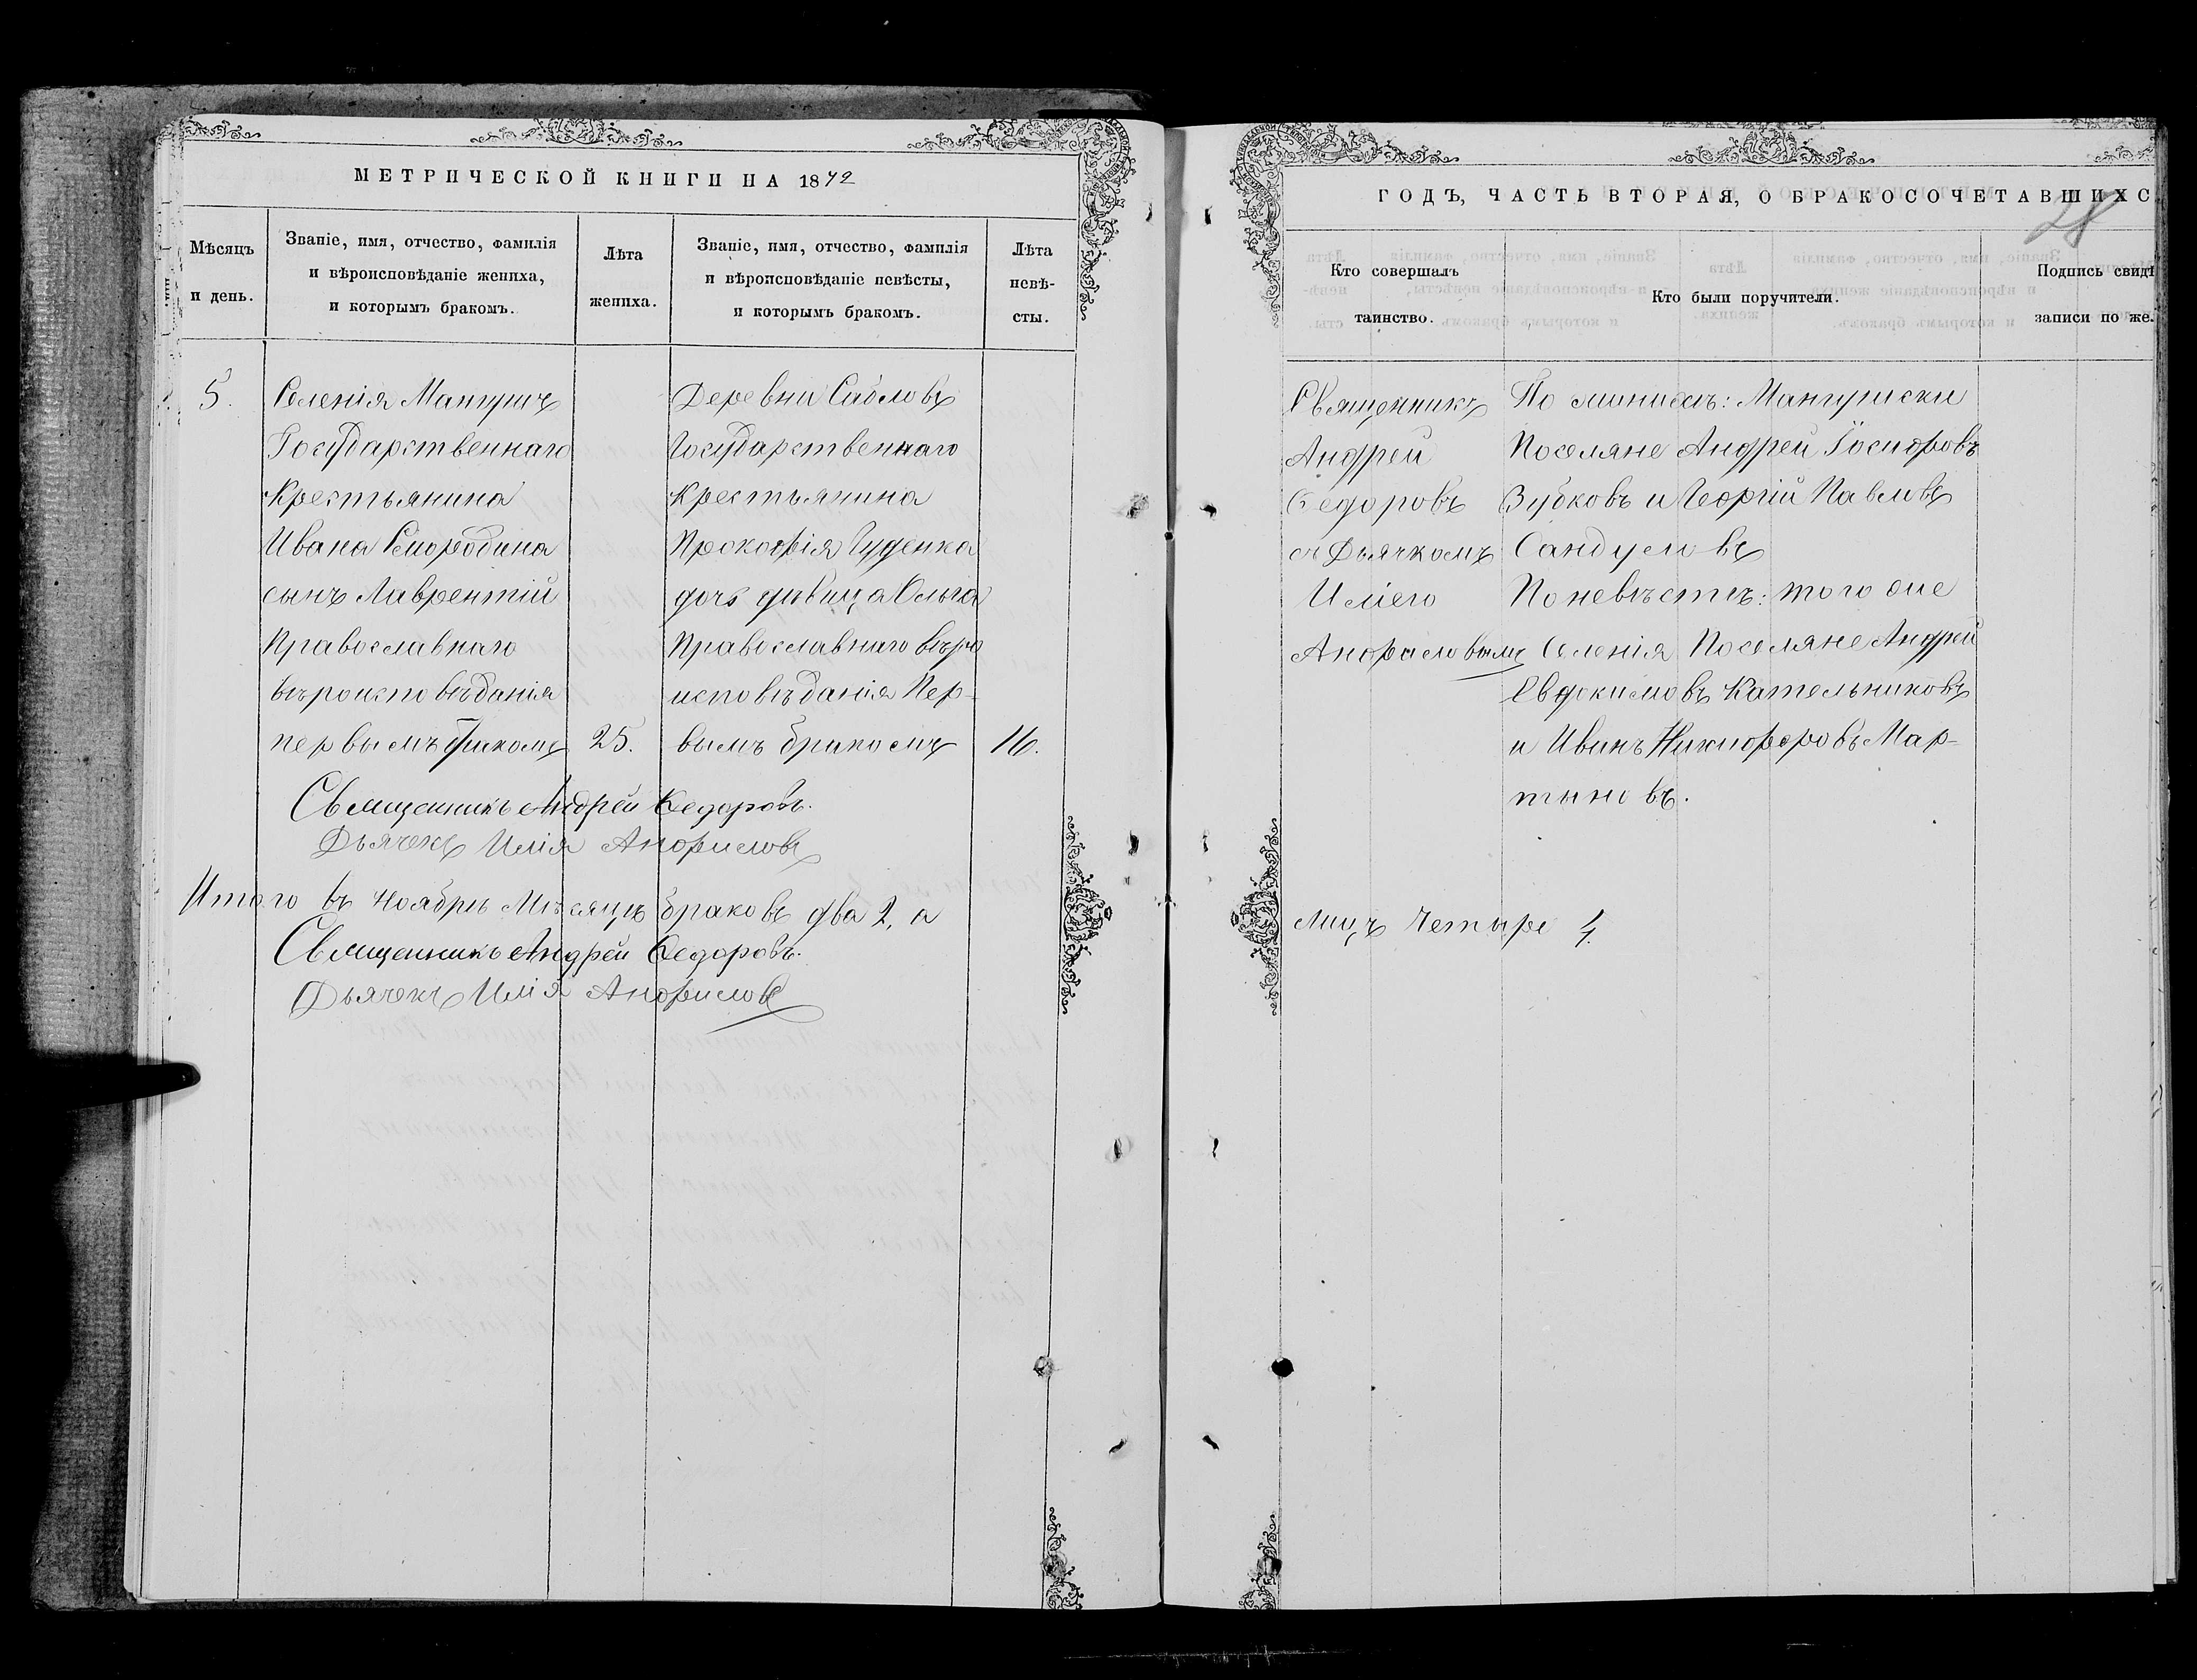 МЕТРИЧЕСКОЙ КНИГИ НА 1872
Мѣсяцъ и день.
Званіе, имя, отчество, фамилія и вѣроисповѣданіе жениха, и которымъ бракомъ.
Лѣта жениха.
Званіе, имя, отчество, фамилія и вѣроисповѣданіе невѣсты, и которымъ бракомъ.
Лѣта невѣ-
сты.
5.
Селенія Мангушъ
Государственнаго
Крестьянина
Ивана Смородина
сынъ Лаврентій
Православнаго
вѣроисповѣданія
первымъ бракомъ
25.
Деревни Сабловъ
Государственнаго
крестьянина
Прокофія Гуденка
дочь дѣвица Ольга
Православнаго вѣро
исповѣданія Пер-
вымъ бракомъ
16.
Священникъ Андрей Ѳедоровъ.
Дьячекъ Илія
Итого въ Ноябрѣ Мѣсяцѣ браковъ два 2, а
Священникъ Андрей Ѳедоровъ.
Дьячекъ Илія
ГОДЪ, ЧАСТЬ ВТОРАЯ, О БРАКОСОЧЕТАВШИХС
28
Кто совершалъ
таинство.
Кто были поручители.
Подпись свидѣ
записи по же
Священникъ
Андрей
Ѳедоровъ
съ Дьячкомъ
Иліею
По женихѣ: Мангушски
Поселяне Андрей Іосифовъ
Зубковъ и Георгій Павловъ
По невѣстѣ: того же
Селенія Поселяне Андрей
Евдокимовъ Кательниковъ
и Иванъ Никифоровъ Мар-
тыновъ.
лицъ Четыре 4.